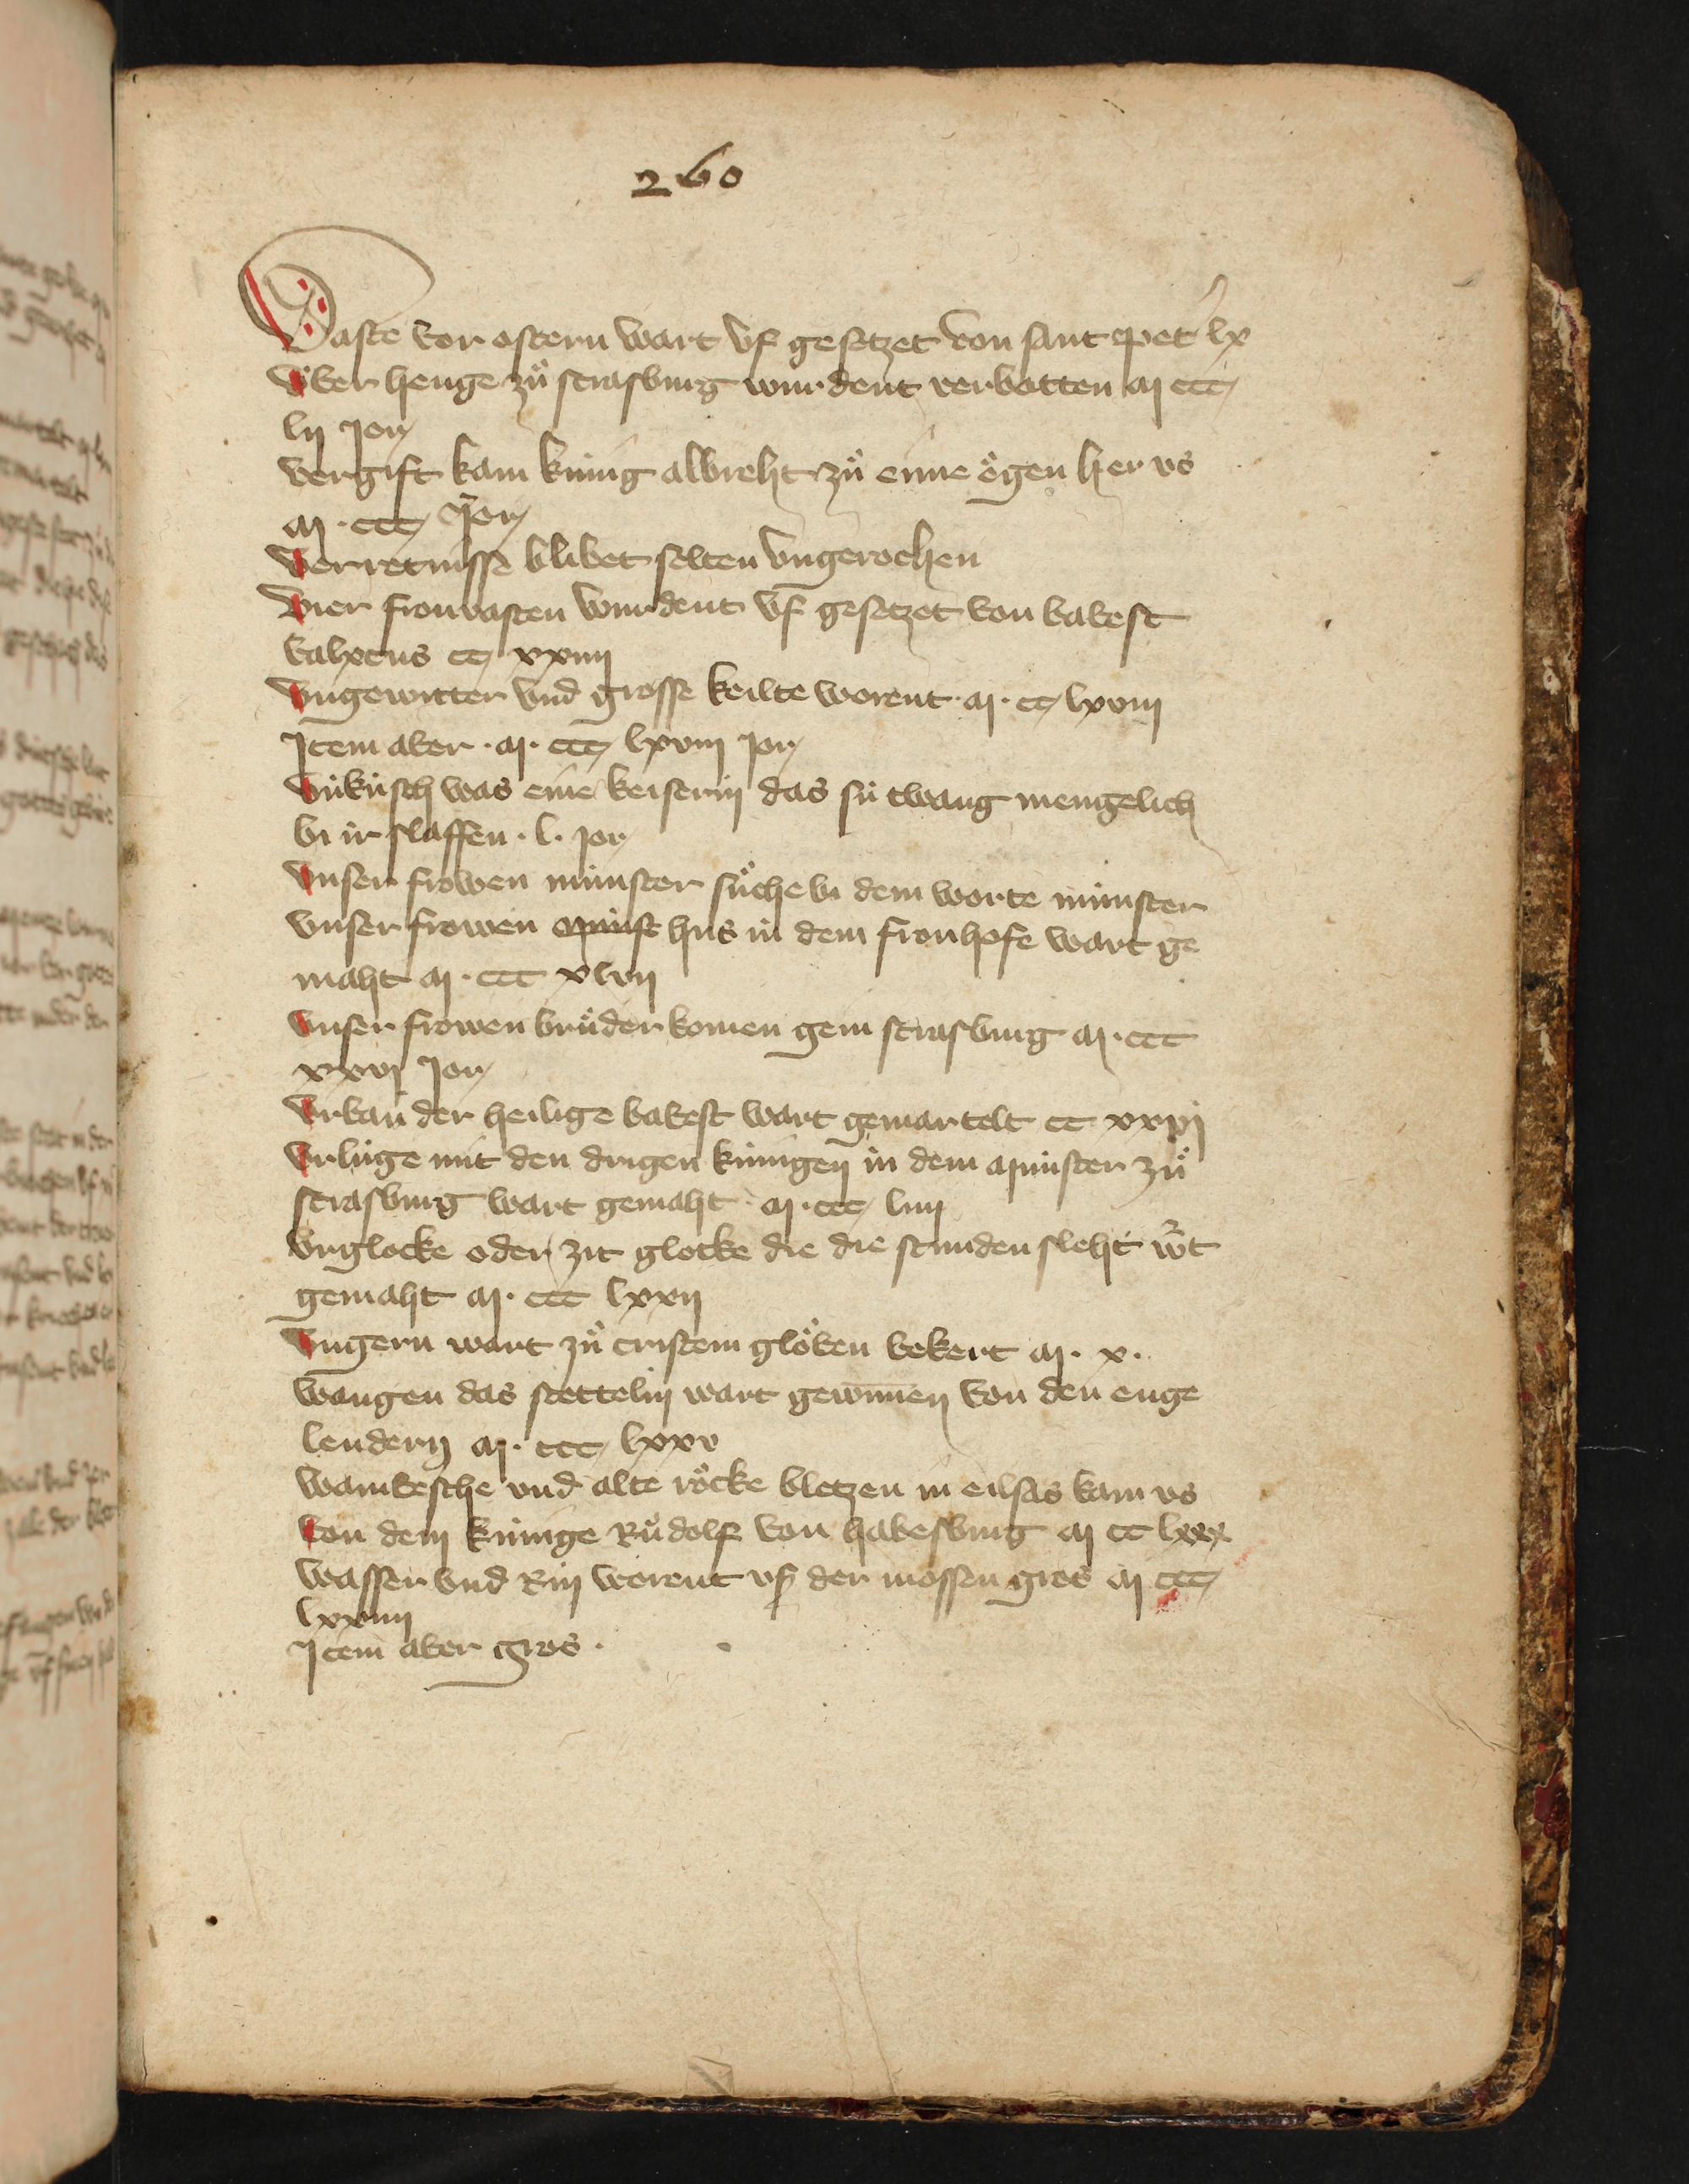 260
Vaste vor ostern wart vf gesetzet von sant peter lx
Vͤber henge zuͦ strasburg wurdent verbotten m ccc
lij jor
vergift kam kúnig albreht zuͦ eime oͤgen her vs
m . ccc jor
Verretnisse blibet selten vngerochen
Vier fronvasten wurdent vf gesetzet von babest
kalixtus cc xxiiij
Vngewitter vnd grosse kelte worent . m . cc lxviij
Jtem aber . m . ccc lxviij jor
Vnkúsch was eine keiserin das sú twang mengelich
bi ir slaffen . l . jor
Vnser frowen múnster suͦche bi dem worte múnster
vnser frowen múnst hus in dem fronhofe wart ge
maht m . ccc xlvij
Vnser frowen bruͤder komen gein strasburg m . ccc
xxvj jor
Vrban der heilige babest wart gemartelt cc xxvj
Vrlúge mit den drigen kúnigen in dem múnster zuͦ
strasburg wart gemaht . m . ccc liiij
Vrglocke oder zit glocke die die stunden sleht wͦt
gemaht m . ccc lxxij
Vngern wart zuͦ cristem gloͤben bekert m . x .
wangen das stettelin wart gewunnen von den enge
lendern m . ccc lxxv
wambesche vnd alte roͤcke bletzen in eilsas kam vs
von dem kúnige Ruͦdolf von habesburg m cc lxxx
wasser vnd Rin worent vs der mossen gros m ccc
lxxiiij
Jtem aber gros .